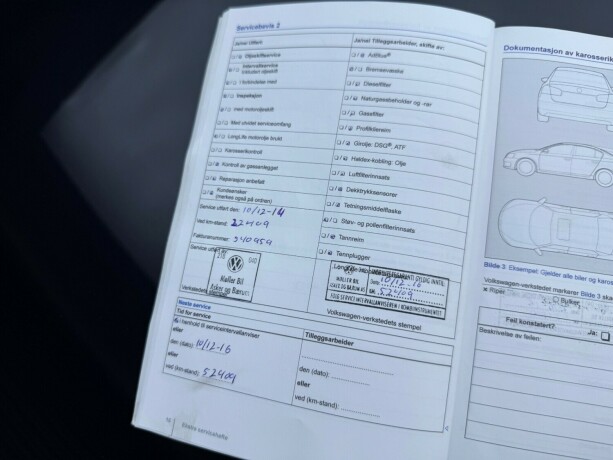 Servicebevis 2
Ja/nei Utført
Ja/nei Tilleggsarbeider, skiftes av:
Oljeskiftservice
Intervallservice
Inspeksjon
med motoroljeskift
Med utvidet serviceomfang
LongLife motorolje brukt
Karosserikontroll
Kontroll av gassanlegget
Reparasjon anbefalt
Kundeønsker
(merkes også på ordren)
AdBlue®
Bremsevæske
Dieselfilter
Naturgassbeholder og -rør
Gassfilter
Profilkilereim
Girolje: DSG®, ATF
Haldex-kobling: Olje
Luftfilterinnsats
Dekktrykksensorer
Tetningsmiddelflaske
Støv- og pollenfilterinnsats
Tannreim
Tannplugger
Service utført den: 10/12-14
Ved km-stand: 22409
Fakturanummer: 340959
Møller Bil
Asker og Bærum
MØLLER BIL
10/12-16
52409
Verkstedets
Volkswagen-verkstedets stempel
Neste service
Tid for service
I henhold til serviceintervallanviser
eller
den (dato): 10/12-16
eller
ved (km-stand): 52409
Tilleggsarbeider
den (dato):
eller
ved (km-stand):
Ekstra servicehefte
Dokumentasjon av karosserik
Bilde 3 Eksempel: Gjelder alle biler og kaross
Volkswagen-verkstedet markerer Bilde 3 ska
Riper
Bulker
Feil konstatert?
Ja:
Beskrivelse av feilen: